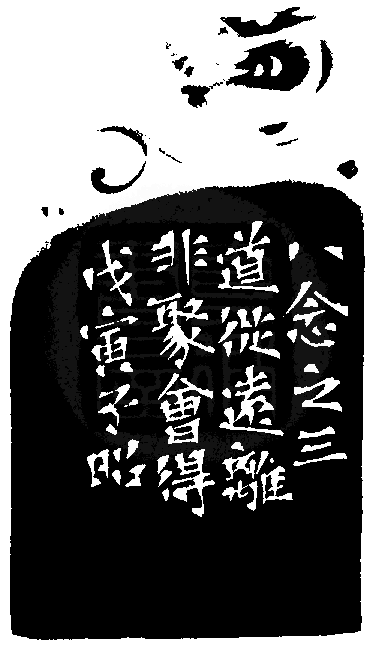 八念之三
道從遠離
非聚會得
戊寅子昭